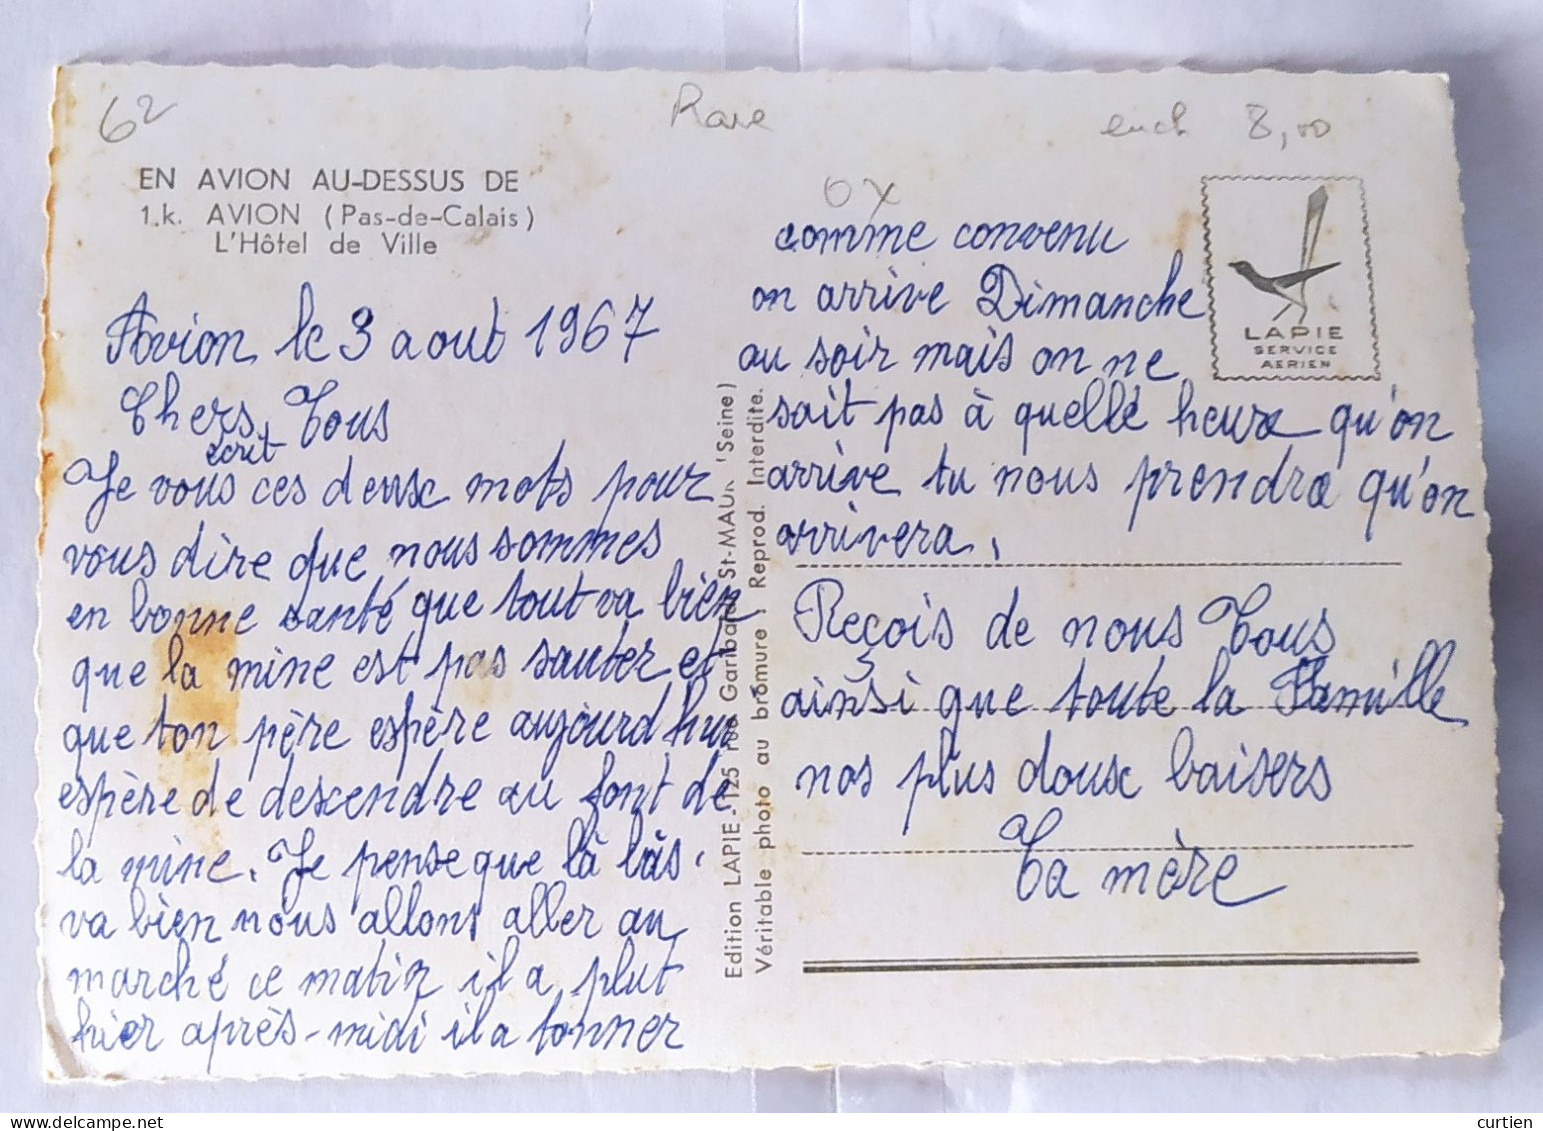 62
Rare
ench 8,00
EN AVION AU-DESSUS DE
1.k. AVION (Pas-de-Calais)
L'Hôtel de Ville
Avion le 3 aout 1967
Chers Tous
écrit
Je vous ces deux mots pour
vous dire que nous sommes
en bonne santé que tout va bien
que la mine est pas sauter et
que ton père espère aujourd'hui
espère de descendre au font de
la mine. Je pense que là bàs
va bien nous allons aller au
marché ce matin il a plut
hier après-midi il a tonner
Edition LAPIE - 125 rue Garibaldi St-MAUR (Seine)
Véritable photo au bromure. Reprod. Interdite.
OX
comme convenu
on arrive Dimanche
au soir mais on ne
sait pas à quelle heure qu'on
arrive tu nous prendra qu'on
arrivera.
Reçois de nous Tous
ainsi que toute la Famille
nos plus doux baisers
Ta mère
LAPIE
SERVICE
AERIEN
curtien